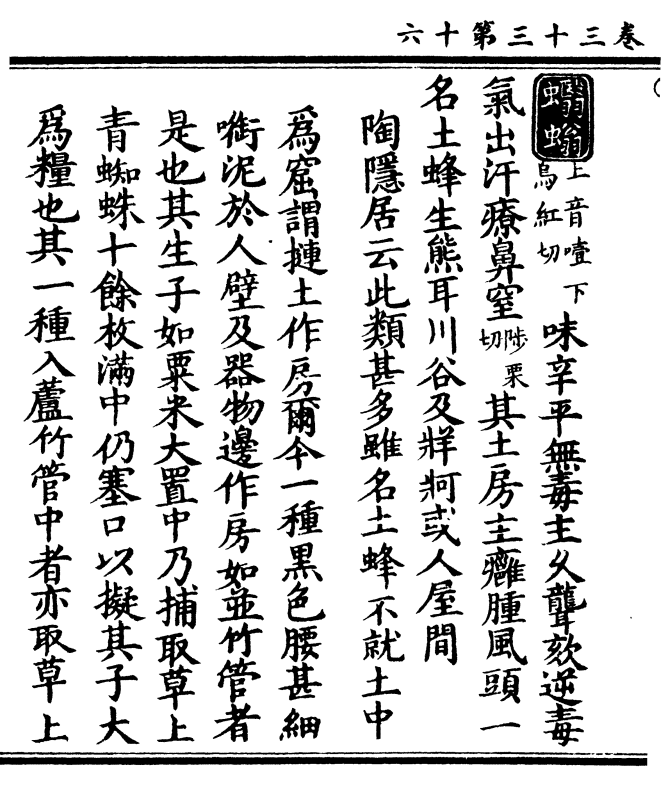 卷三十三第十六
蠮螉上音噎下烏紅切味辛平無毒主久聾欬逆毒
氣出汗療鼻窒陟栗切其土房主癰腫風頭一
名土蜂生熊耳川谷及牂牁或人屋間
陶隱居云此類甚多雖名土蜂不就土中
爲窟謂摙土作房爾今一種黑色腰甚細
銜泥於人壁及器物邊作房如並竹管者
是也其生子如粟米大置中乃捕取草上
青蜘蛛十餘枚滿中仍塞口以擬其子大
爲糧也其一種入蘆竹管中者亦取草上